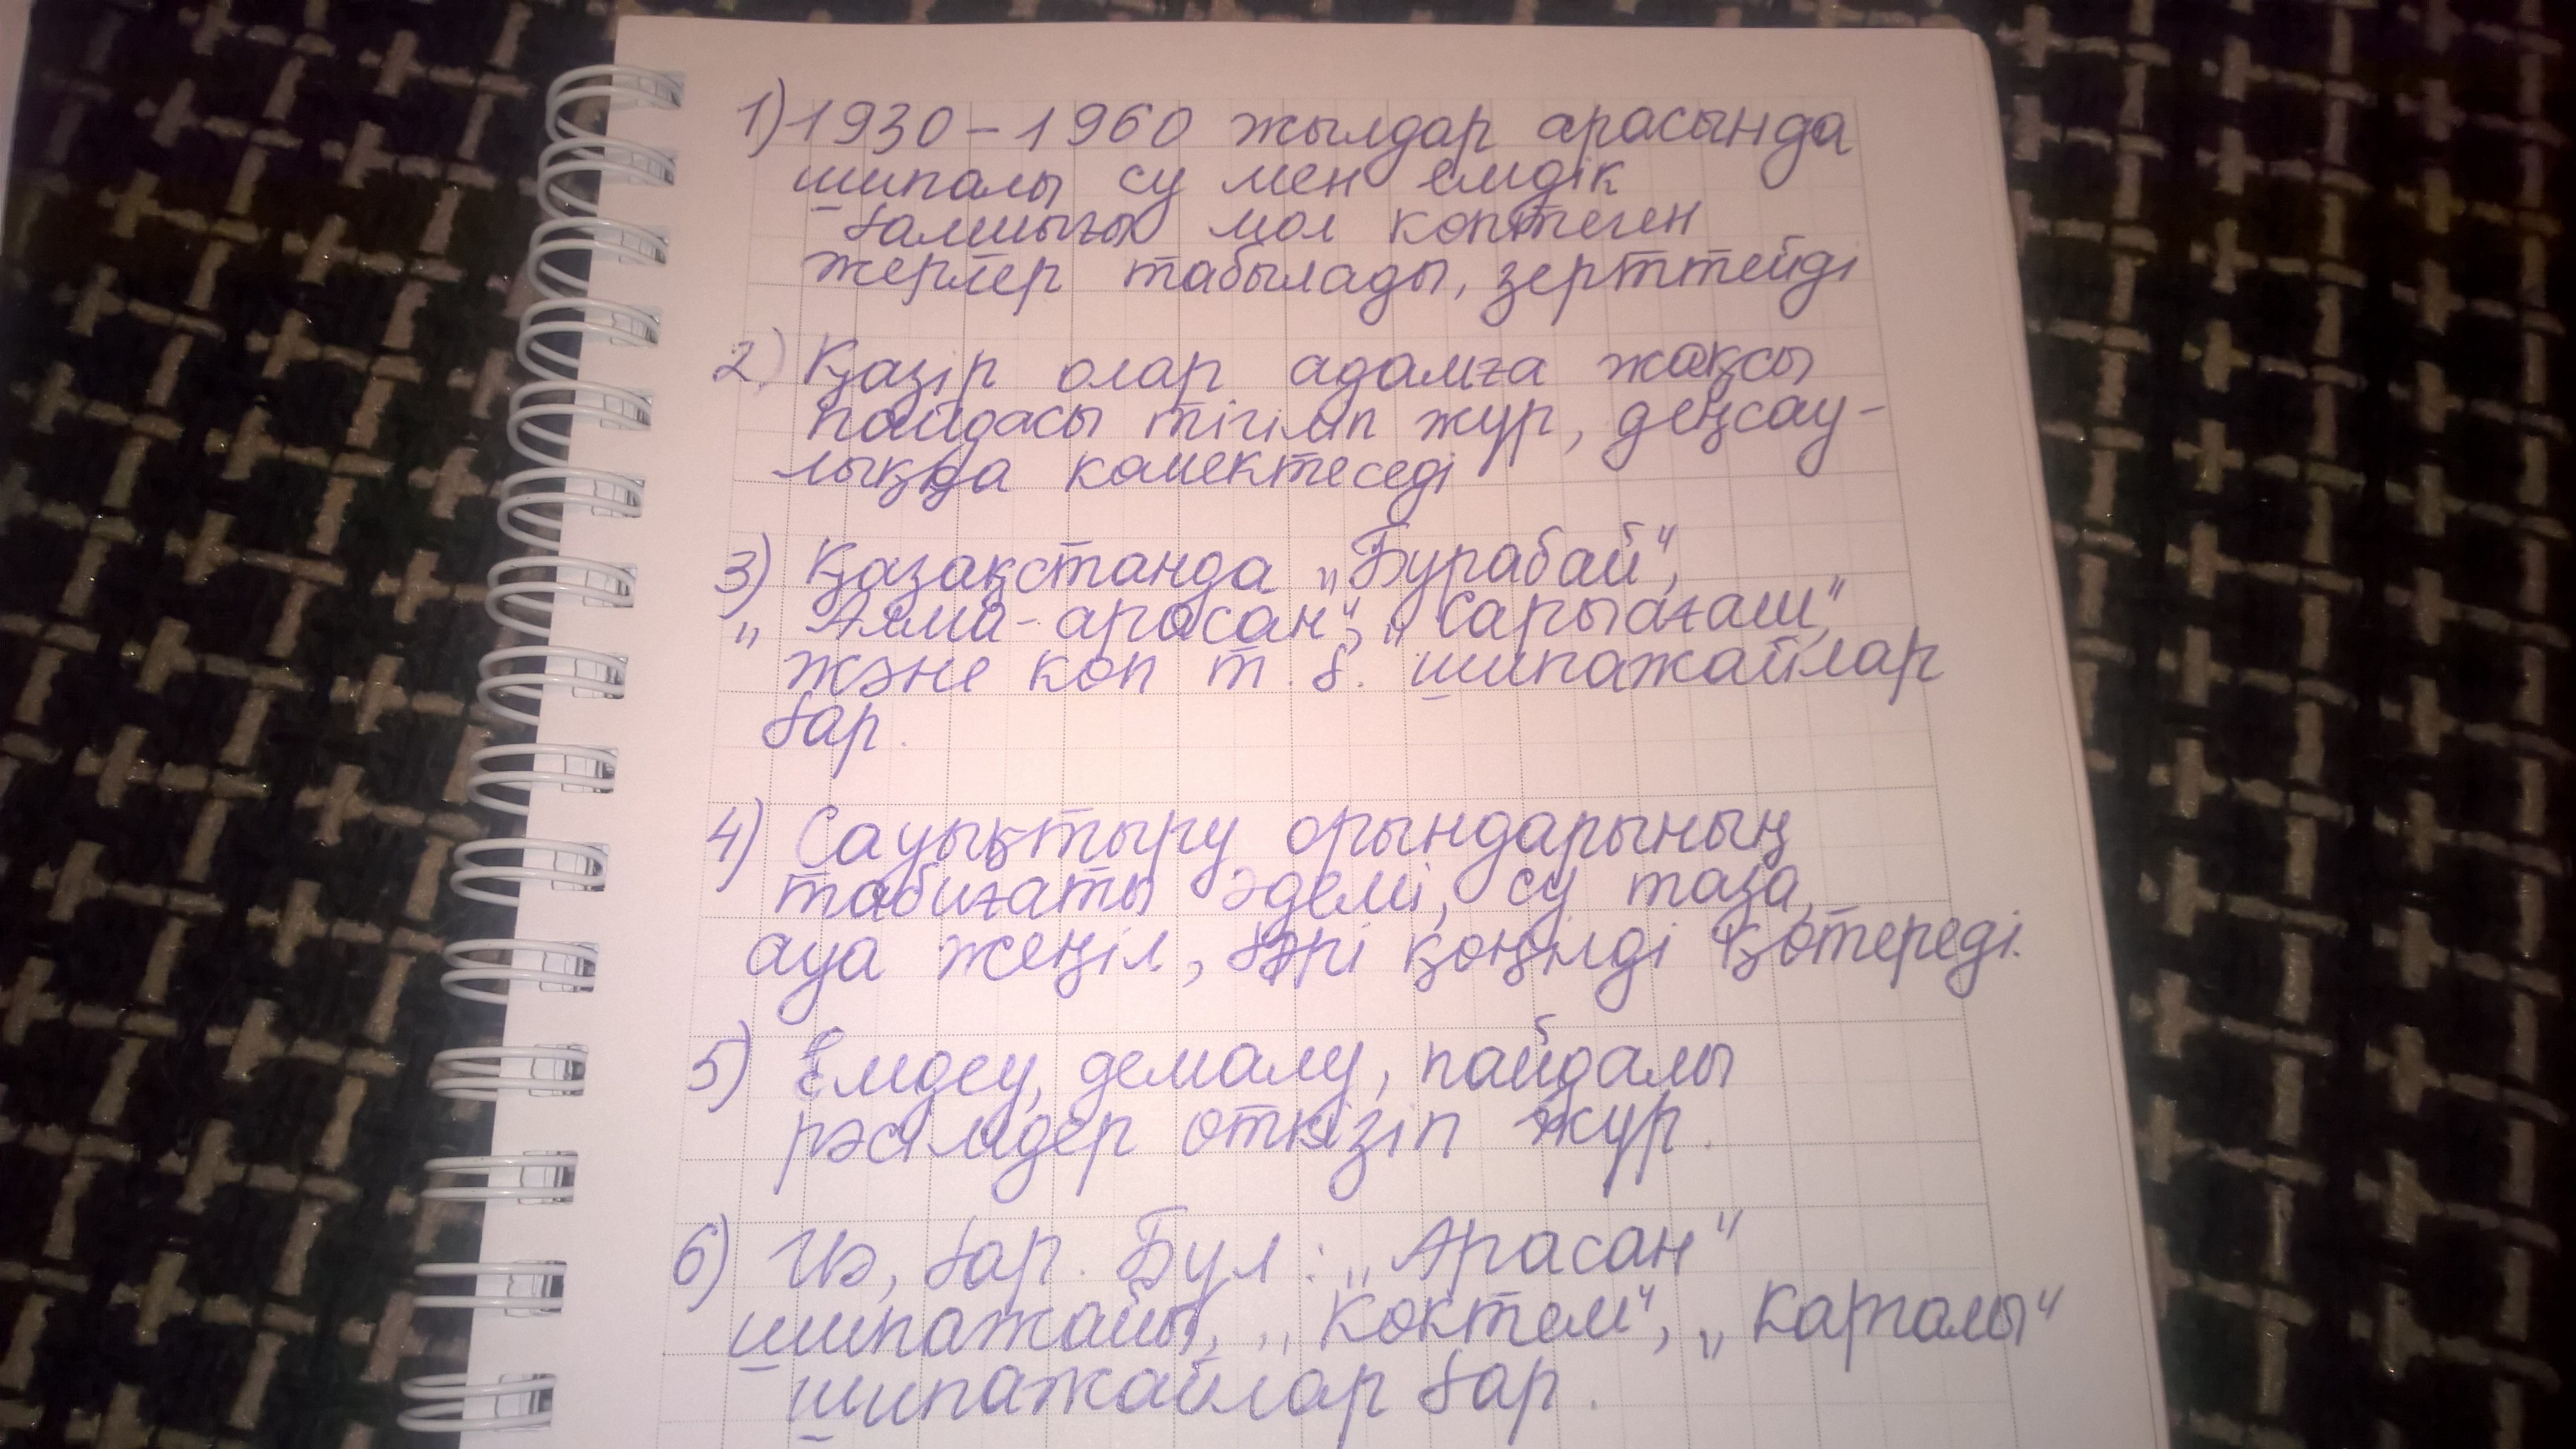 1) 1930 – 1960 жылдар арасында
шипалы су мен емдік
балшығы мол көптеген
жерлер табылады, зерттейді
2) Қазір олар адамға жақсы
пайдасы тигізіп жүр, деңсау-
лыққа көмектеседі
3) Қазақстанда „Бурабай“,
„ Алма-арасан“, „Сарыағаш“
және көп т. б. шипажайлар
бар.
4) Сауықтыру орындарының
табиғаты әдемі, су таза,
ауа жеңіл, бәрі қөңілді қөтереді.
5) Емдеу, демалу, пайдалы
рәсімдер өткізіп жүр.
6) Иә, бар. Бұл : „Арасан“
шипажайы, „Көктем“, „Қарғалы“
шипажайлар бар.